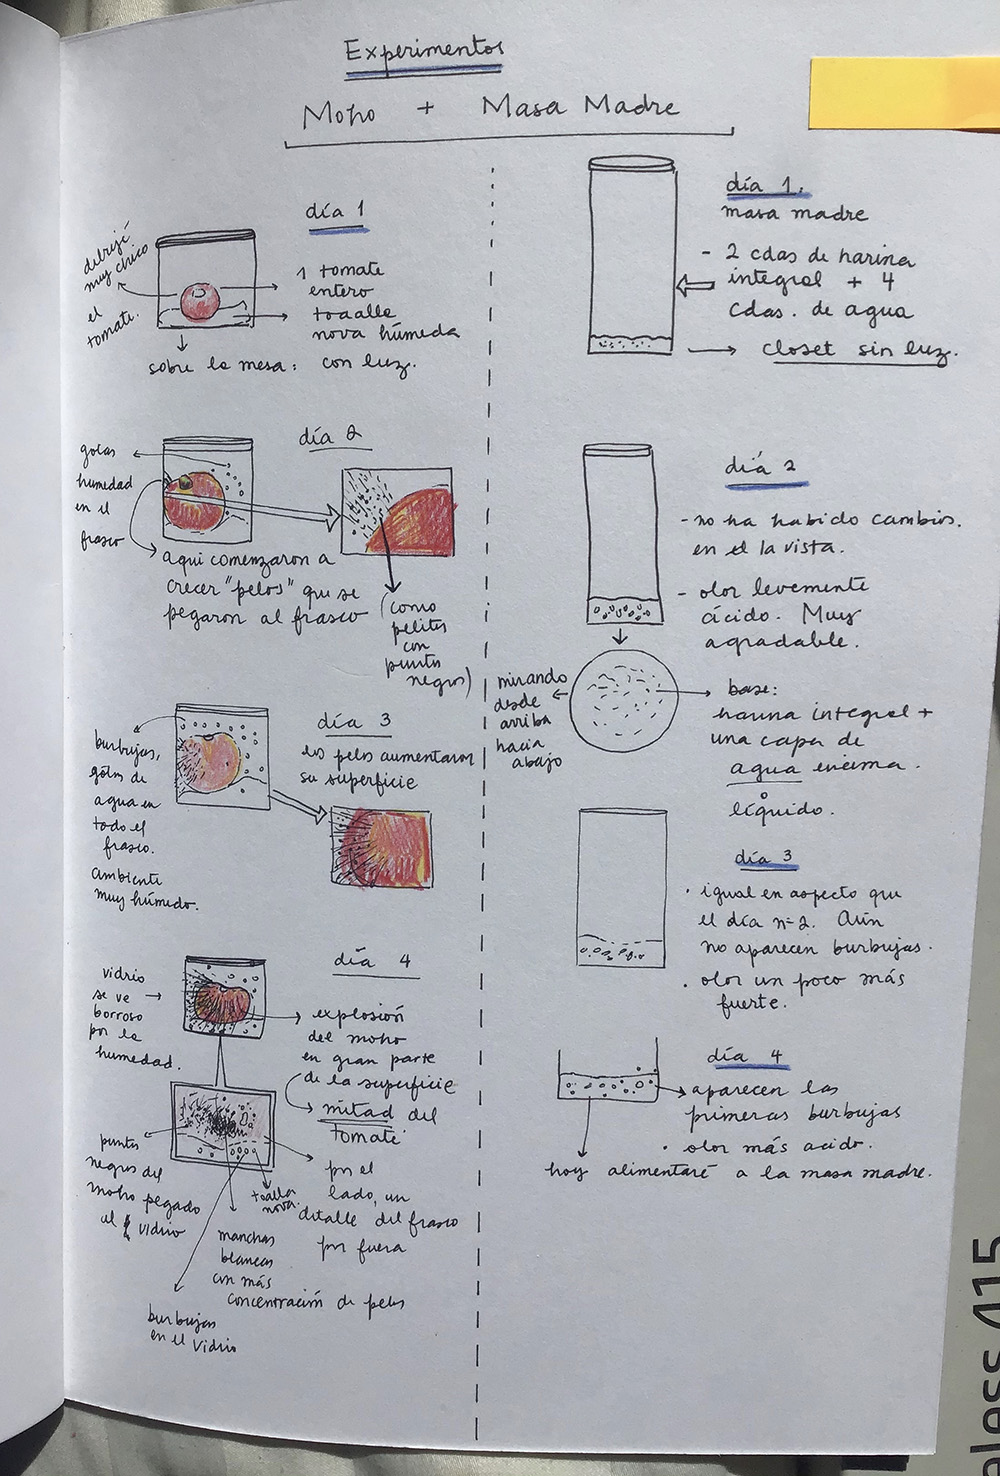 Experimentos
Moho + Masa Madre
día 1
dibujé
muy chico
el
tomate.
1 tomate
entero
toalla
nova húmeda
sobre la mesa: con luz.
día 2
gotas
humedad
en el
frasco
aquí comenzaron a
crecer "pelos" que se
pegaron al frasco
(como
pelitos
con
puntos
negros)
día 3
los pelos aumentaron
su superficie
burbujas,
gotas de
agua en
todo el
frasco.
ambiente
muy húmedo.
día 4
vidrio
se ve
borroso
por la
humedad.
explosión
del moho
en gran parte
de la superficie
mitad del
tomate
puntos
negros del
moho pegado
al vidrio
toalla
nova
por el
lado, un
detalle del frasco
por fuera
manchas
blancas
con más
concentración de pelos
burbujas
en el vidrio
día 1.
masa madre
- 2 cdas de harina
integral + 4
cdas. de agua
closet sin luz.
día 2
- no ha habido cambios.
en el la vista.
- olor levemente
ácido. Muy
agradable.
mirando
desde
arriba
hacia
abajo
base:
harina integral +
una capa de
agua encima.
o
líquido.
día 3
• igual en aspecto que
el día n=2. Aún
no aparecen burbujas.
• olor un poco más
fuerte.
día 4
aparecen las
primeras burbujas
• olor más acido.
hoy alimentaré a la masa madre.
eless 415